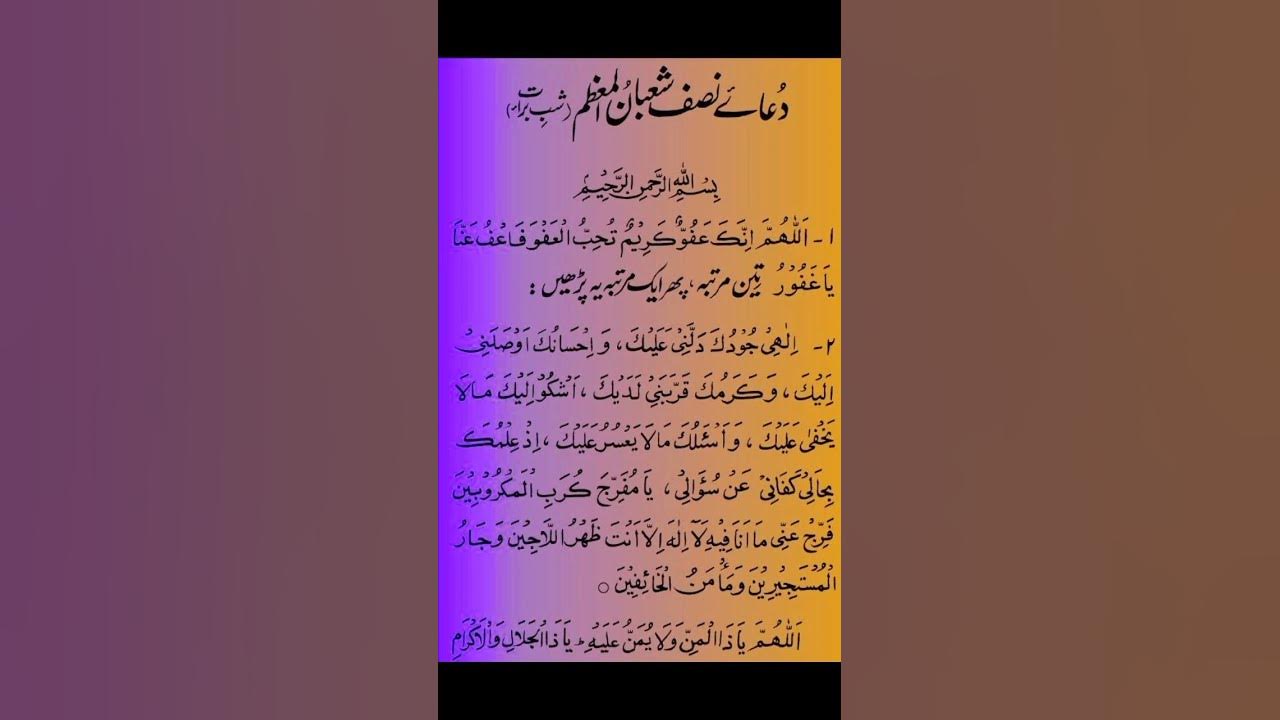 دُعائے نصف شعبانُ المعظم (شبِ برات)
بِسْمِ اللهِ الرَّحْمٰنِ الرَّحِيْمِ
۱- اَللّٰهُمَّ اِنَّكَ عَفُوٌّ كَرِيْمٌ تُحِبُّ الْعَفْوَ فَاعْفُ عَنَّا
يَا غَفُوْرُ تین مرتبہ، پھر ایک مرتبہ یہ پڑھیں :
۲- اِلٰهِيْ جُوْدُكَ دَلَّنِيْ عَلَيْكَ، وَ اِحْسَانُكَ اَوْصَلَنِيْ
اِلَيْكَ، وَ كَرَمُكَ قَرَّبَنِيْ لَدَيْكَ، اَشْكُوْ اِلَيْكَ مَا لَا
يَخْفٰى عَلَيْكَ، وَ اَسْئَلُكَ مَا لَا يَعْسُرُ عَلَيْكَ، اِذْ عِلْمُكَ
بِحَالِيْ كَفَانِيْ عَنْ سُؤَالِيْ، يَا مُفَرِّجَ كُرَبِ الْمَكْرُوْبِيْنَ
فَرِّجْ عَنِّيْ مَا اَنَا فِيْهِ لَآ اِلٰهَ اِلَّا اَنْتَ ظَهْرُ اللَّاجِيْنَ وَ جَارُ
الْمُسْتَجِيْرِيْنَ وَ مَأْمَنُ الْخَائِفِيْنَ ○
اَللّٰهُمَّ يَا ذَا الْمَنِّ وَلَا يُمَنُّ عَلَيْهِ ؕ يَا ذَا الْجَلَالِ وَالْاِكْرَامِ